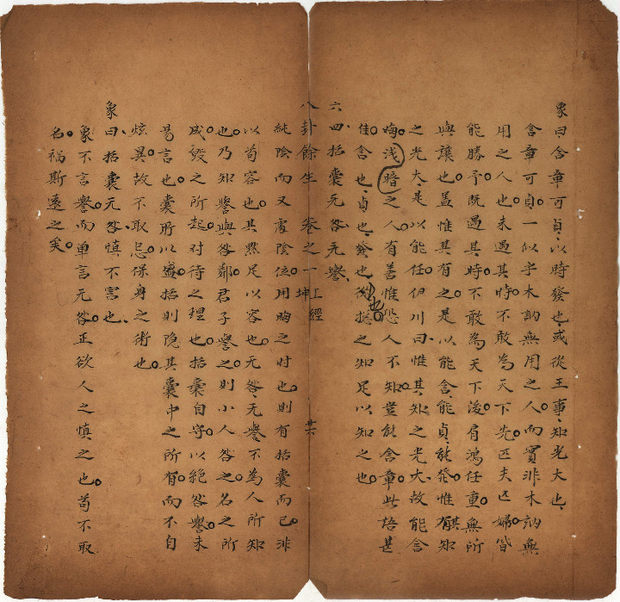 象曰含章可貞以時發也或從王事知光大也
含章可貞一似乎木訥無用之人而實非木訥無
用之人也未過其時不敢為天下先匹夫匹婦皆
能勝予既過其時不敢為天下後肩鴻任重無所
與讓也蓋惟其有之是以能含能貞能發惟其知
之光大是以能任伊川曰惟其知之光大故能含
晦淺暗之人有善惟恐人不知豈能含章此語甚
佳含也貞也發也後之知足以知之也
六四括囊无咎无譽
八卦餘生 卷之一 上經 坤
純陰而又處陰位用晦之时也則有括囊而已非
以苟容也其默足以容也无咎无譽不為人所知
也乃知譽與咎鄰君子譽之則小人咎之名之所
成毀之所起对待之理也括囊自守以絶咎譽未
易言也囊所以盛括則隐其囊中之所有而不自
炫異故不取忌保身之術也
象曰括囊无咎慎不害也
象不言譽而单言无咎正欲人之慎之也苟不取
名禍斯遠之矣